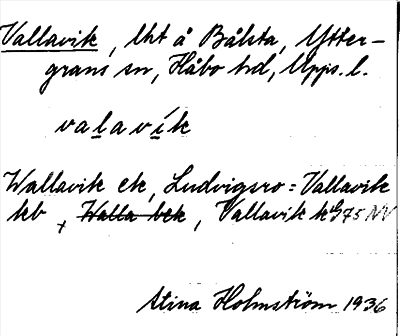 Vallavik, lht å Bålsta, Ytter-
grans sn, Håbo hd, Upps. l.
valavík
Wallavik ek, Ludvigsro = Vallavik
kb, Walla bek, Vallavik k 75 NV
Stina Holmström 1936